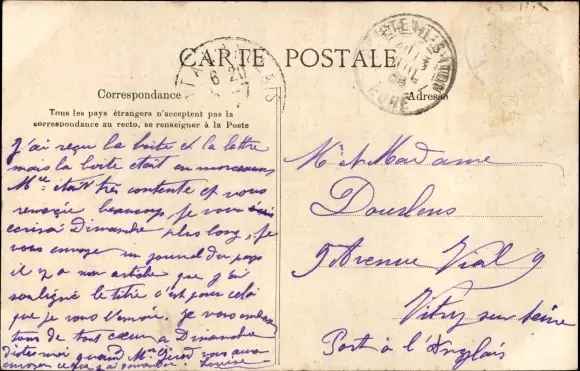 CARTE POSTALE
Correspondance
Tous les pays étrangers n'acceptent pas la
correspondance au recto, se renseigner à la Poste
Adresse
6 20
EURE
J'ai reçu la boite et la lettre
mais la boite était en morceaux
Mce était très contente et vous
remercie beaucoup je vous
ecrirai Dimanche plus long, je
vous envoye un journal du pays
il y a un article que j'ai
souligné le titre c'est pour cela
que je vous l'envoie. je vous embrasse
tous de tout cœur a Dimanche
dites moi quand Mr vous aura
envoyer ce que Louise
Mr et Madame
Dourlens
9 Avenue Vial 9
Vitry sur Seine
Port à l'Anglais